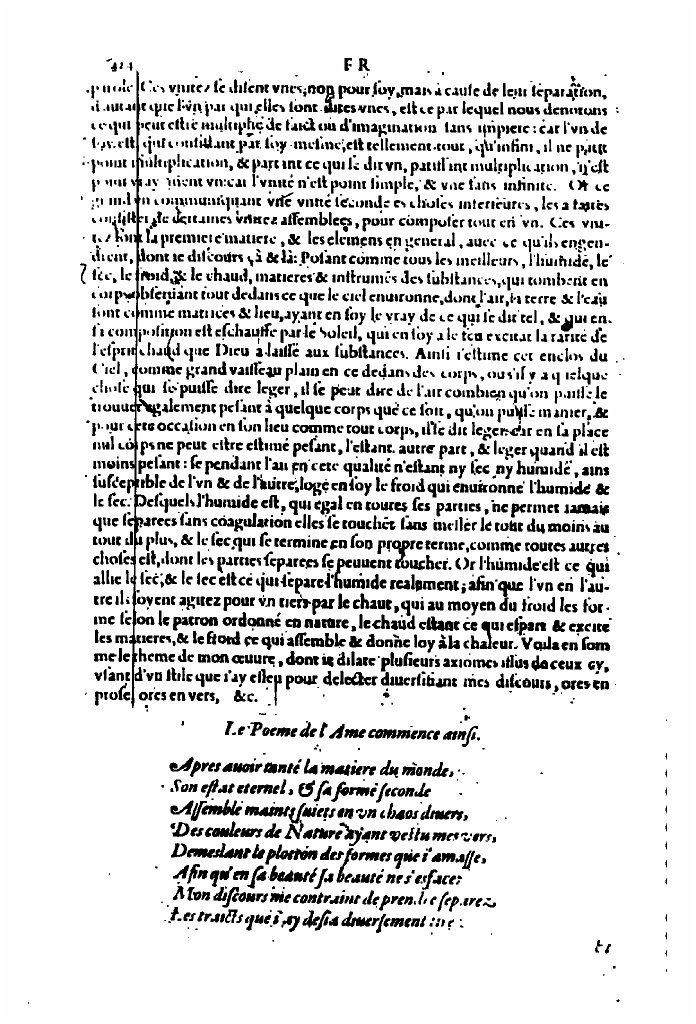 424 F R
Ces vnitez se disent vnes, non pour soy, mais à cause de leur separation,
d'autant que l'vn par qui elles sont dites vnes, est ce par lequel nous denotons
ce qui peut estre multiplié de faict ou d'imagination sans impieté: car l'vn de
soy, est, qui consistant par soy mesme, est tellement tout, qu'infini, il ne
point multiplication, & partant ce qui se dit vn, patissant multiplication, n'est
point vray vn: car l'vnité n'est point simple, & vne sans infinité. Or ce
grand vn communiquant vne vnité seconde es choses inferieures, les a faites
consister de certaines vnitez assemblees, pour composer tout en vn. Ces vni-
tez sont la premiere matiere, & les elemens en general, auec ce qu'ils engen-
drent, dont ie discours çà & là: Posant comme tous les meilleurs, l'humide, le
sec, le froid, & le chaud, matieres & instrumés des substances, qui tombent en
corps obseruant tout dedans ce que le ciel enuironne, dont l'air, la terre & l'eau
sont comme matrices & lieu, ayant en soy le vray de ce qui se dit tel, & qui en
sa composition est eschauffé par le Soleil, qui en soy a le feu excitāt la rarité de
l'esprit chaud que Dieu a laissé aux substances. Ainsi i'estime cet enclos du
Ciel, comme grand vaisseau plain en ce dedans des corps, ou s'il y a quelque
chose qui se puisse dire leger, il se peut dire de l'air combien qu'on puisse le
trouuer egalement pesant à quelque corps que ce soit, qu'on puisse manier, &
pour cete occasion en son lieu comme tout corps, il se dit leger: car en sa place
nul corps ne peut estre estimé pesant, l'estant autre part, & leger quand il est
moins pesant: se pendant l'air en cete qualité n'estant ny sec ny humide, ains
susceptible de l'vn & de l'autre, loge en soy le froid qui enuironne l'humide &
le sec. Desquels l'humide est, qui egal en toutes ses parties, ne permet iamais
que separees sans coagulation elles se touchēt sans mesler le tout du moins au
tout du plus, & le sec qui se termine en son propre terme, comme toutes autres
choses est, dont les parties separees se peuuent toucher. Or l'humide est ce qui
allie le sec, & le sec est ce qui separe l'humide realement; afin que l'vn en l'au-
tre ils soyent agitez pour vn tiers par le chaut, qui au moyen du froid les for-
me selon le patron ordonné en nature, le chaud estant ce qui espart & excite
les matieres, & le froid ce qui assemble & donne loy à la chaleur. Voila en som
me le theme de mon œuure, dont ie dilate plusieurs axiomes issus de ceux cy,
vsant d'vn stile que i'ay esleu pour delecter diuersifiant mes discours, ores en
prose, ores en vers, &c.
Le Poeme de l'Ame commence ainsi.
Apres auoir tanté la matiere du monde,
Son estat eternel, & sa forme seconde
Assemblé maints suiets en vn chaos diuers,
Des couleurs de Nature ayant vestu mes vers,
Demeslant le plotton des formes que i'amasse,
Afin qu'en sa beauté sa beauté ne s'efface:
Mon discours me contraint de prendre separez
Les traicts que i'ay desia diuersement